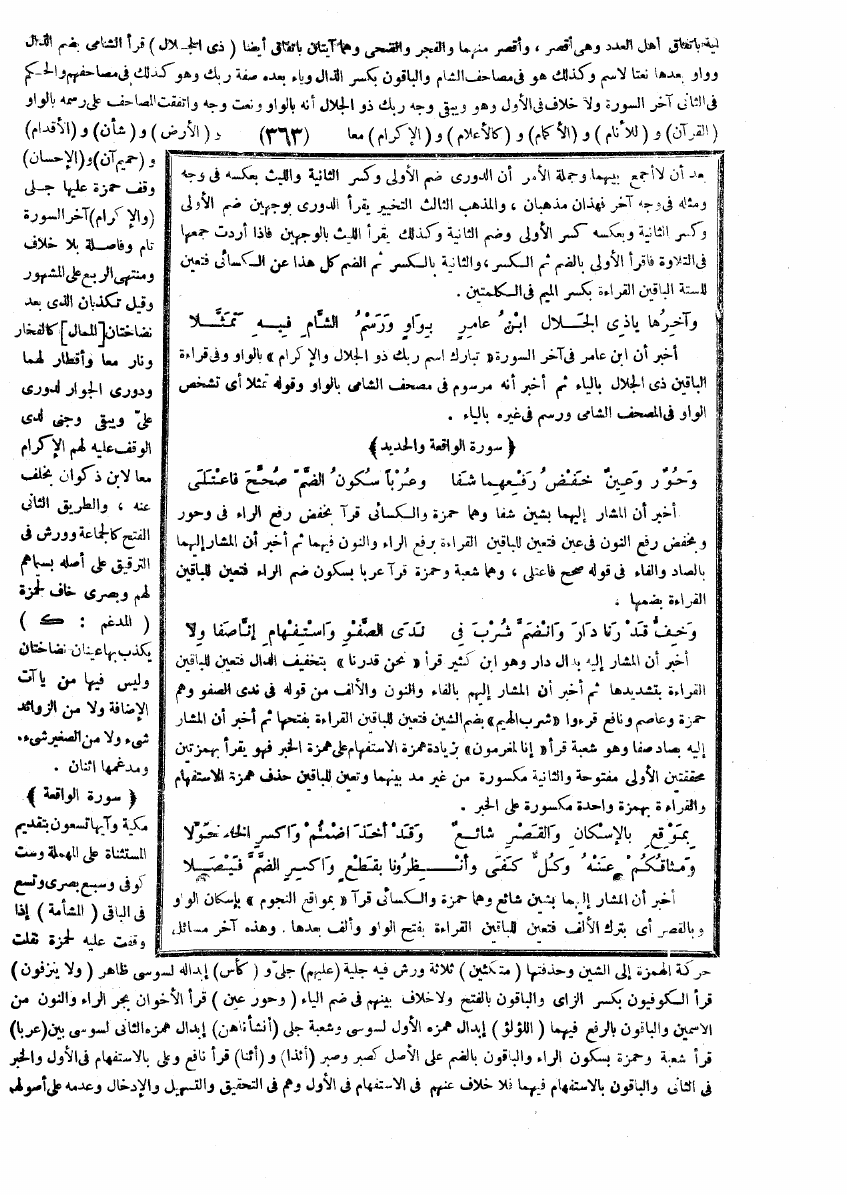 لية باتفاق أهل العدد وهى أقصر ، وأقصر منهما والفجر والضحى وهما آيتان باتفاق أيضا ( ذى الجلال ) قرأ الشامى بضم الذال
وواو بعدها نعتا لاسم وكذلك هو فى مصاحف الشام والباقون بكسر الذال وياء بعده صفة ربك وهو كذلك فى مصاحفهم والحكم
فى الثانى آخر السورة ولا خلاف فى الأول وهو ويبقى وجه ربك ذو الجلال أنه بالواو ونعت وجه واتفقت المصاحف على رسمه بالواو
( القرآن ) و ( للأنام ) و ( الأكمام ) و ( كالأعلام ) و ( الإكرام ) معا (٣٦٣) و ( الأرض ) و ( شأن ) و (الأقدام)
بعد أن لا أجمع بينهما وجملة الأمر أن الدورى ضم الأولى وكسر الثانية والليث بعكسه فى وجه
ومثله فى وجه آخر فهذان مذهبان ، والمذهب الثالث التخيير يقرأ الدورى بوجهين ضم الأولى
وكسر الثانية وبعكسه كسر الأولى وضم الثانية وكذلك يقرأ الليث بالوجهين فاذا أردت جمعها
فى التلاوة فاقرأ الأولى بالضم ثم الكسر، والثانية بالكسر ثم الضم كل هذا عن الكسائى فتعين
للستة الباقين القراءة بكسر الميم فى الكلمتين .
وَآخِرُها ياذِى الجَلالِ ابْنُ عامِرٍ بِوَاوٍ وَرَسْمُ الشَّامِ فِيهِ تَمَثَّلا
أخبر أن ابن عامر فى آخر السورة « تبارك اسم ربك ذو الجلال والإكرام » بالواو وفى قراءة
الباقين ذى الجلال بالياء ثم أخبر أنه مرسوم فى مصحف الشامى بالواو وقوله تمثلا أى تشخص
الواو فى المصحف الشامى ورسم فى غيره بالياء .
﴿ سورة الواقعة والحديد ﴾
وَحُورٌ وَعِينٌ خَفْضُ رَفْعِهِما شَفا وعُرْباً سُكُونُ الضَّمِّ صُحِّحَ فَاعْتَلَى
أخبر أن المشار إليهما بشين شفا وهما حمزة والكسائى قرآ بخفض رفع الراء فى وحور
وبخفض رفع النون فى عين فتعين للباقين القراءة برفع الراء والنون فيهما ثم أخبر أن المشار إليهما
بالصاد والفاء فى قوله صحح فاعتلى ، وهما شعبة وحمزة قرآ عربا بسكون ضم الراء فتعين للباقين
القراءة بضمها .
وَخِفُّ قَدَرْنا دَارَ وَانْضَمَّ شُرْبَ فِى نَدَى الصَّفْوِ وَاسْتِفْهامُ إِنَّا صَفا وِلا
أخبر أن المشار إليه بدال دار وهو ابن كثير قرأ « نحن قدرنا » بتخفيف الدال فتعين للباقين
القراءة بتشديدها ثم أخبر أن المشار إليهم بالفاء والنون والألف من قوله فى ندى الصفو وهم
حمزة وعاصم ونافع قرءوا « شرب الهيم » بضم الشين فتعين للباقين القراءة بفتحها ثم أخبر أن المشار
إليه بصاد صفا وهو شعبة قرأ « إنا لمغرمون » بزيادة همزة الاستفهام على همزة الخبر فهو يقرأ بهمزتين
محققتين الأولى مفتوحة والثانية مكسورة من غير مد بينهما وتعين للباقين حذف همزة الاستفهام
والقراءة بهمزة واحدة مكسورة على الخبر .
بِمَوْقِعِ بالإِسْكانِ وَالقَصْرِ شائِعٌ وَقَدْ أَخَذَ اضْمُمْ وَاكسِرِ الخاءَ حَوَّلا
وَمِيثاقُكُمْ عَنْهُ وَكُلٌّ كَفَى وأنْـظِرُونا بِقَطْعٍ وَاكسِرِ الضَّمَّ فَيْصَلا
أخبر أن المشار إليهما بشين شائع وهما حمزة والكسائى قرآ « بمواقع النجوم » بإسكان الواو
وبالقصر أى بترك الألف فتعين للباقين القراءة بفتح الواو وألف بعدها . وهذه آخر مسائل
و (حميم آن) و (الإحسان)
وقف حمزة عليها جلى
(والإكرام) آخر السورة
تام وفاصلة بلا خلاف
ومنتهى الربع على المشهور
وقيل تكذبان الذى بعد
نضاختان [الممال] كالفخار
ونار معا وأقطار لهما
ودورى الجوار لدورى
علىّ ويبقى وجنى لدى
الوقف عليه لهم الإكرام
معا لابن ذكوان بخلف
عنه ، والطريق الثانى
الفتح كالجماعة وورش فى
الترقيق على أصله بسماهم
لهم وبصرى خاف لحمزة
( المدغم : ك )
يكذب بها عينان نضاختان
وليس فيها من ياآت
الإضافة ولا من الزوائد
شىء ولا من الصغير شىء.
ومدغمها اثنان .
﴿ سورة الواقعة ﴾
مكية وآيها تسعون بتقديم
المثناة على المهملة وست
كوفى وسبع بصرى وتسع
فى الباقى ( المشأمة ) إذا
وقفت عليه لحمزة نقلت
حركة الهمزة إلى الشين وحذفتها ( متكئين ) ثلاثة ورش فيه جلية (عليهم) جلىّ و ( كأس) إبداله لسوسى ظاهر ( ولا ينزفون)
قرأ الكوفيون بكسر الزاى والباقون بالفتح ولا خلاف بينهم فى ضم الياء ( وحور عين ) قرأ الأخوان بجر الراء والنون من
الاسمين والباقون بالرفع فيهما ( اللؤلؤ ) إبدال همزه الأول لسوسى وشعبة جلى (أنشأناهن) إبدال همزه الثانى لسوسى بين (عربا)
قرأ شعبة وحمزة بسكون الراء والباقون بالضم على الأصل كصبر وصبر (أئذا) و (أئنا) قرأ نافع وعلى بالاستفهام فى الأول والخبر
فى الثانى والباقون بالاستفهام فيهما فلا خلاف عنهم فى الاستفهام فى الأول وهم فى التحقيق والتسهيل والإدخال وعدمه على أصولهم